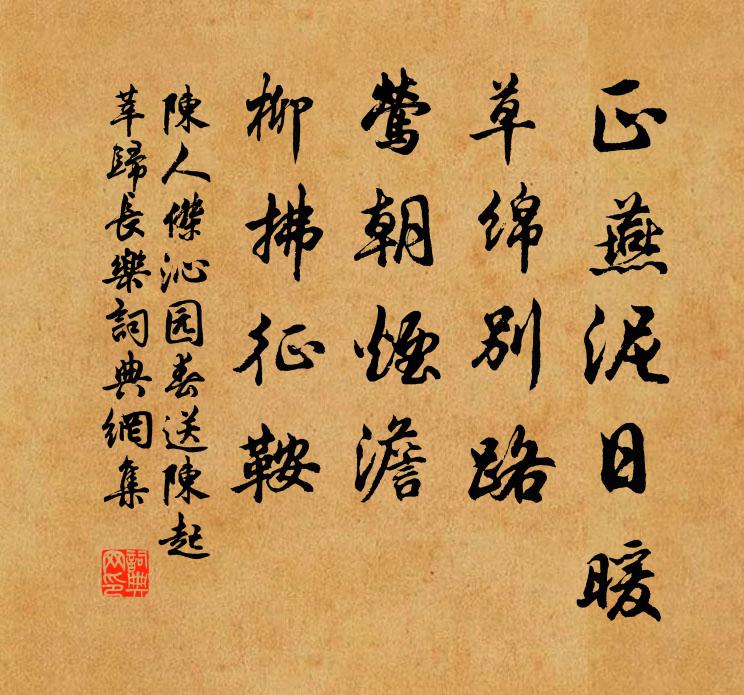 正燕泥日暖
草綿別路
鶯朝煙澹
柳拂征鞍
陳人傑沁园春送陳起
莘歸長樂詞典網集
詞典网印